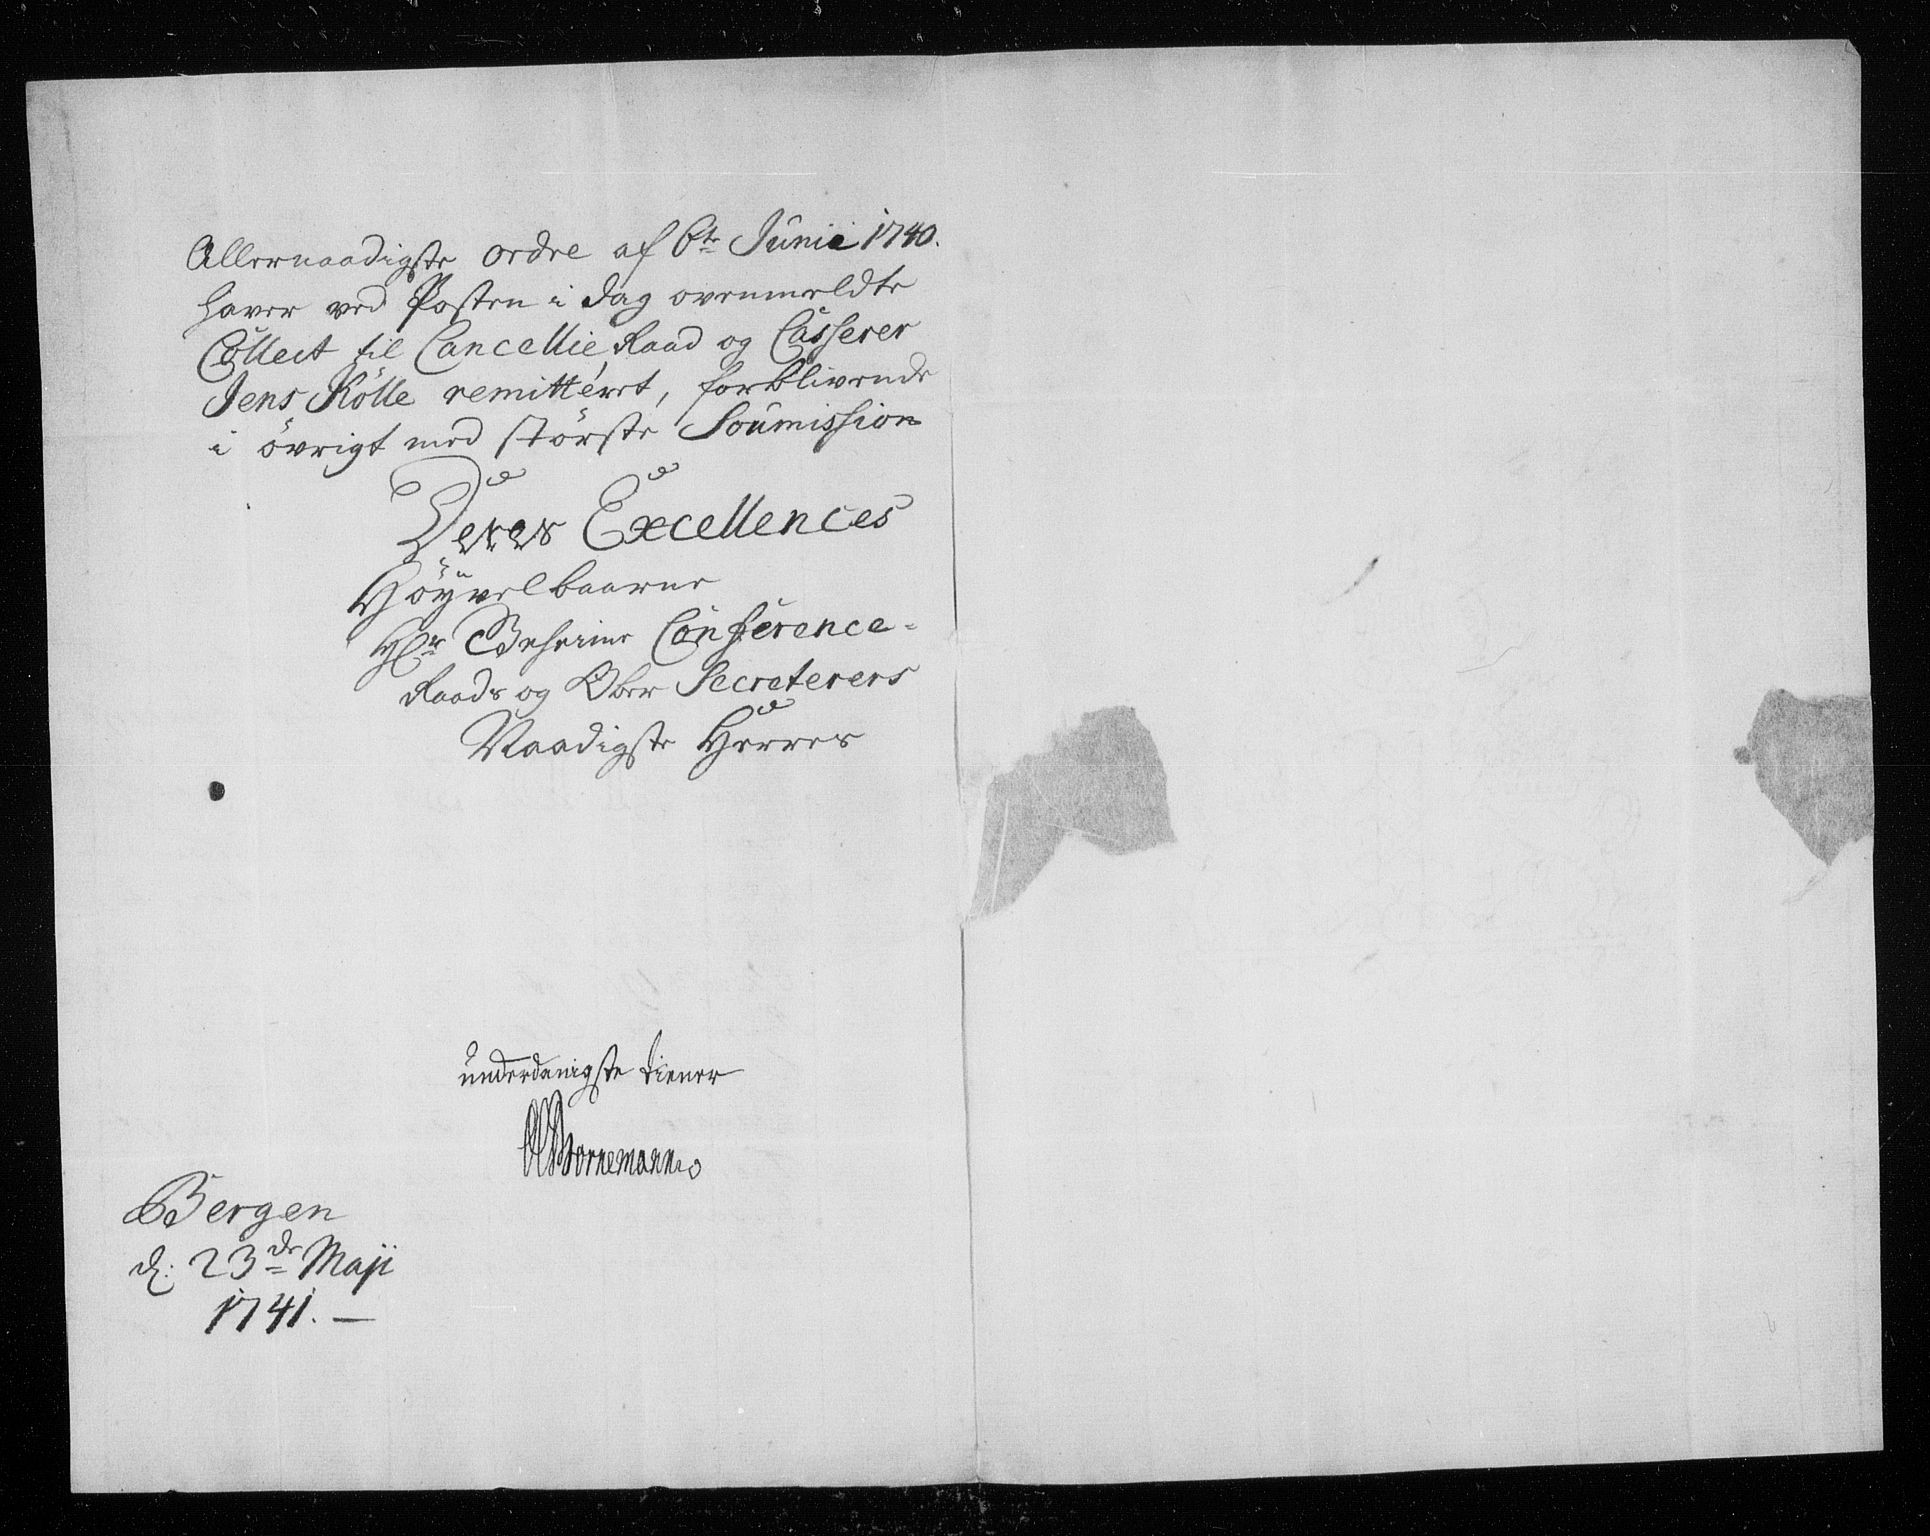 Allernaadigste ordre af 6te Junii 1740.
haver ved Posten i dag ovenmeldte
Collect til Cancellie Raad og Casserer
Jens Kölle remitteret, forblivende
i övrigt med störste Soumission
Deres Excellences
Höÿvelbaarne
Hr Geheime Conference-
Raads og Ober Secreterers
Naadigste Herres
underdanigste tiener
OBornemann
Bergen
d: 23de Maji
1741. —